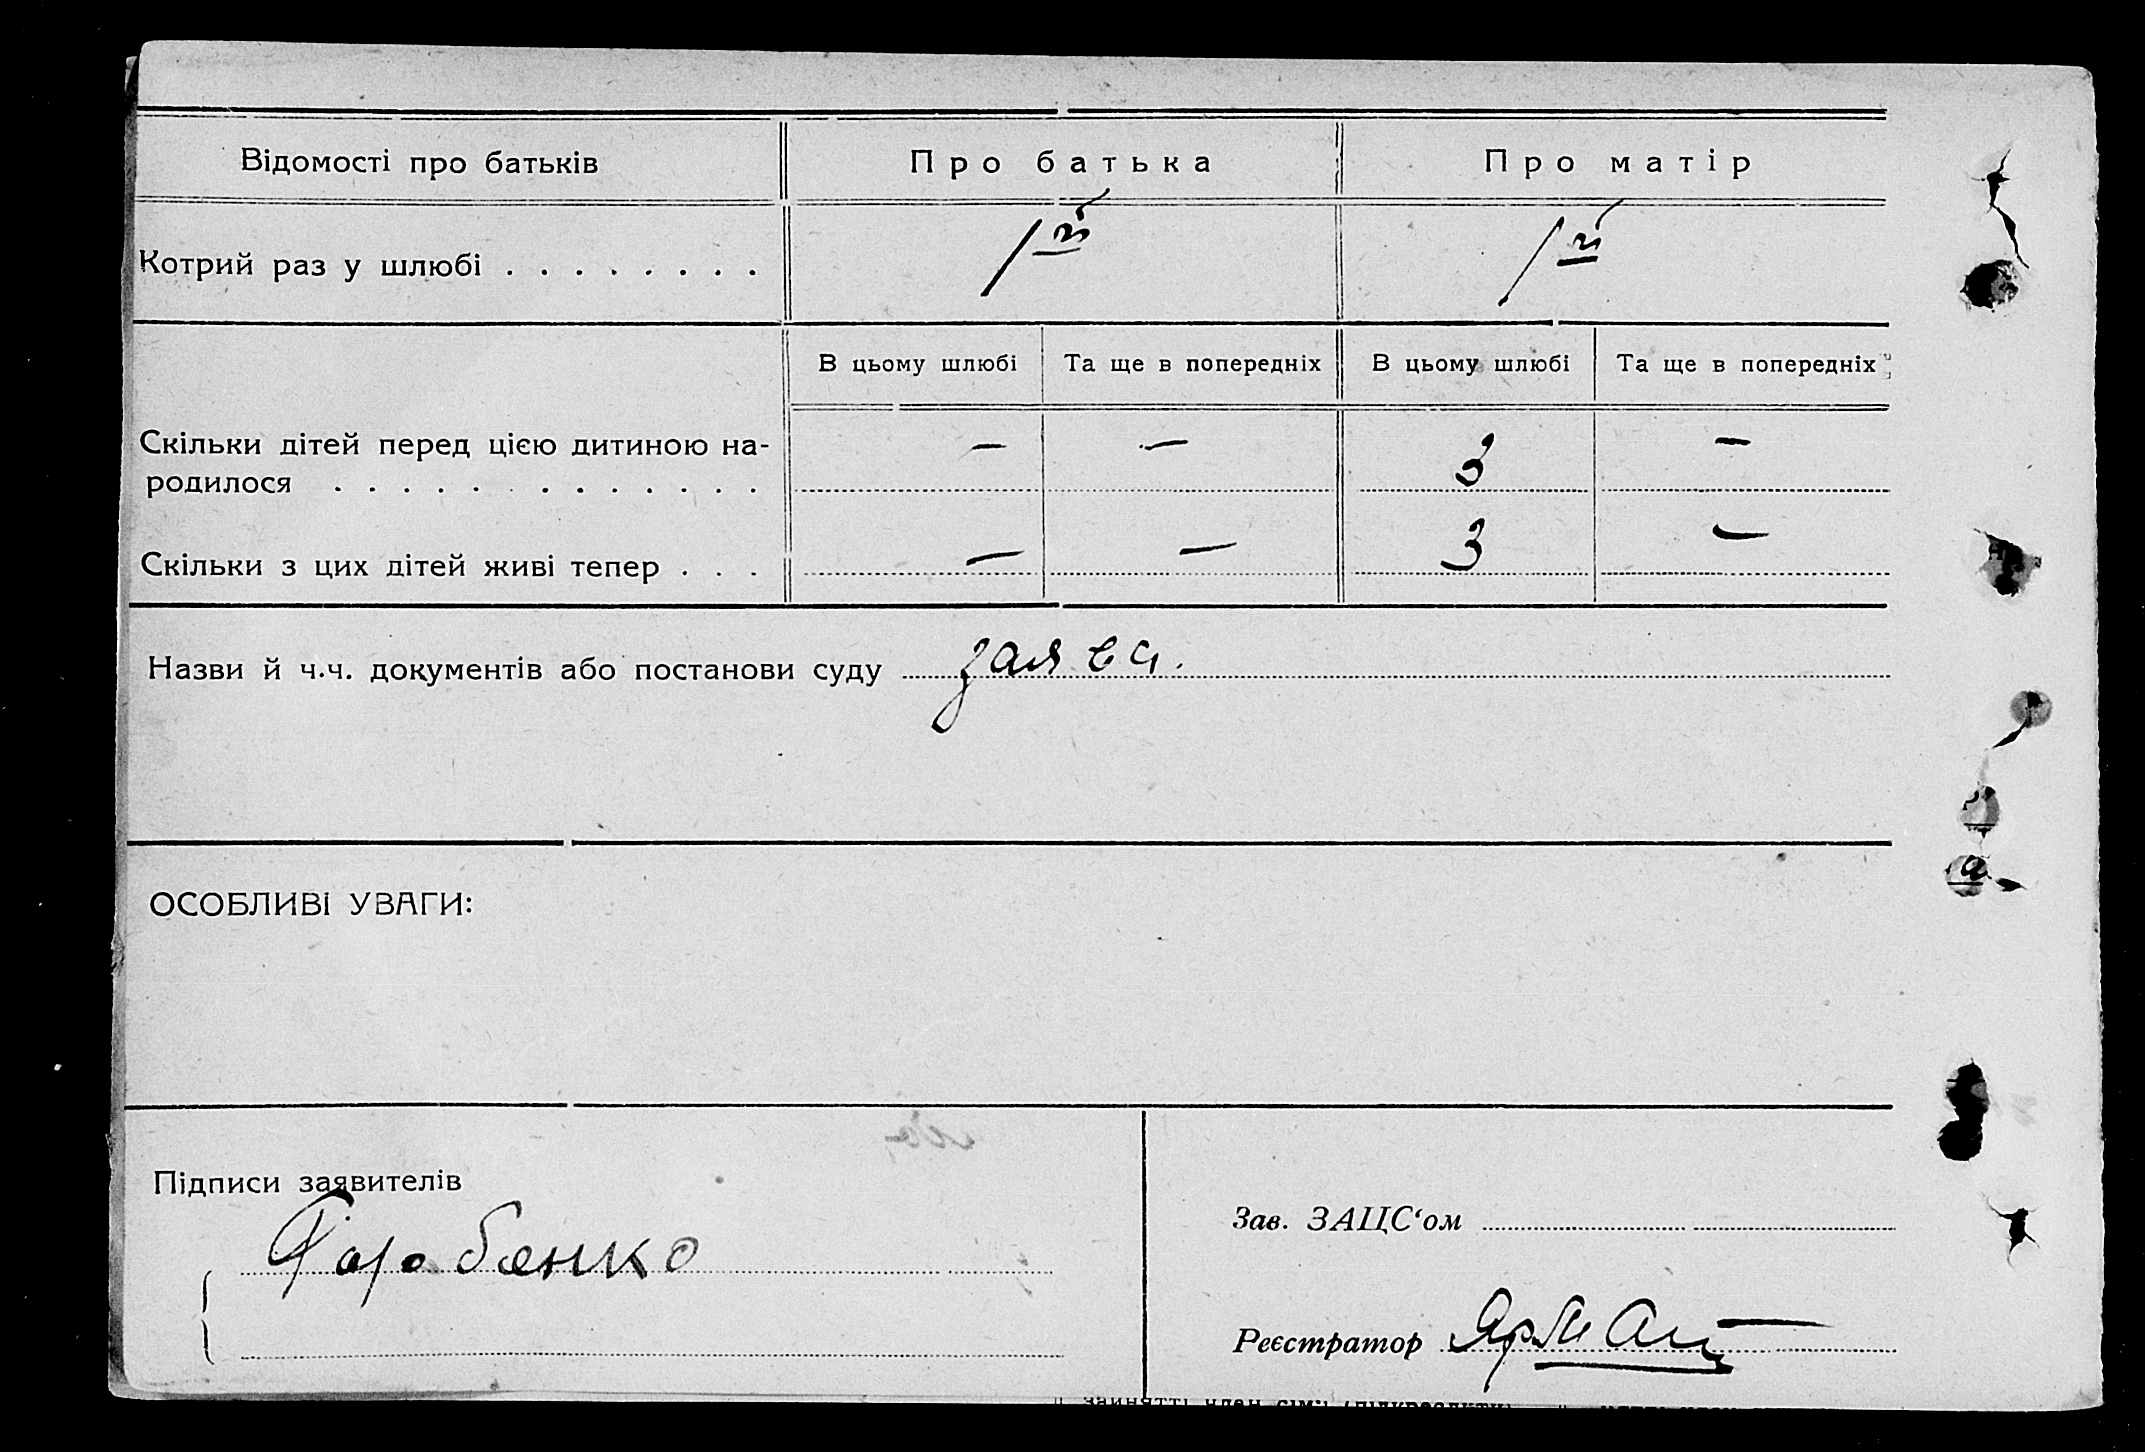 Відомості про батьків Про батька Про матір
Котрий раз у шлюбі . . . . . . . . 1й 1й
В цьому шлюбі Та ще в попередніх В цьому шлюбі Та ще в попередніх
Скільки дітей перед цією дитиною на-
родилося . . . . . . . . . . . . . — — 3 —
Скільки з цих дітей живі тепер . . . — — 3 —
Назви й ч.ч. документів або постанови суду заява.
ОСОБЛИВІ УВАГИ:
Підписи заявителів
Зав. ЗАЦС‘ом
Реєстратор